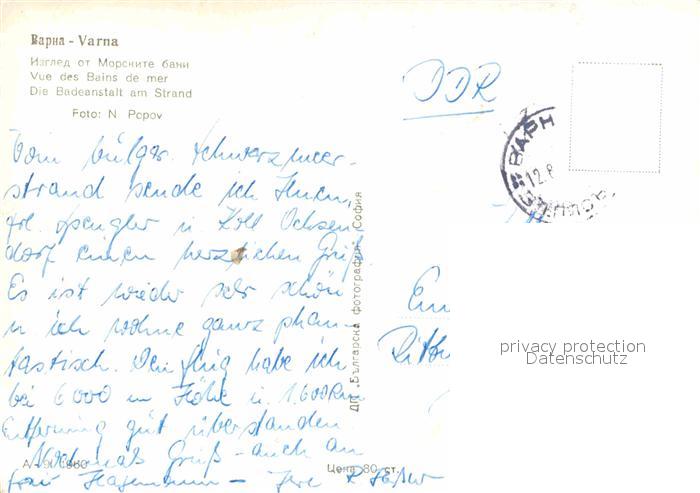 Варна - Varna
Изглед от Морските бани
Vue des Bains de mer
Die Badeanstalt am Strand
Foto: N. Popov
DDR
ВАРН
12.8
Vom bulgar. Schwarzmeer-
strand sende ich Ihnen,
Frl. Spengler u. Koll Ochsen
dorf einen herzlichen Gruß.
Es ist wieder sehr schön
u ich wohne ganz phan-
tastisch. Den Flug habe ich
bei 6000 m Höhe u. 1600 km
Entfernung gut überstanden
Nochmals Gruß - auch an
Frau Hagemann - Ihre R
ДП „Българска фотография" София
Цена 80 ст.
privacy protection
Datenschutz